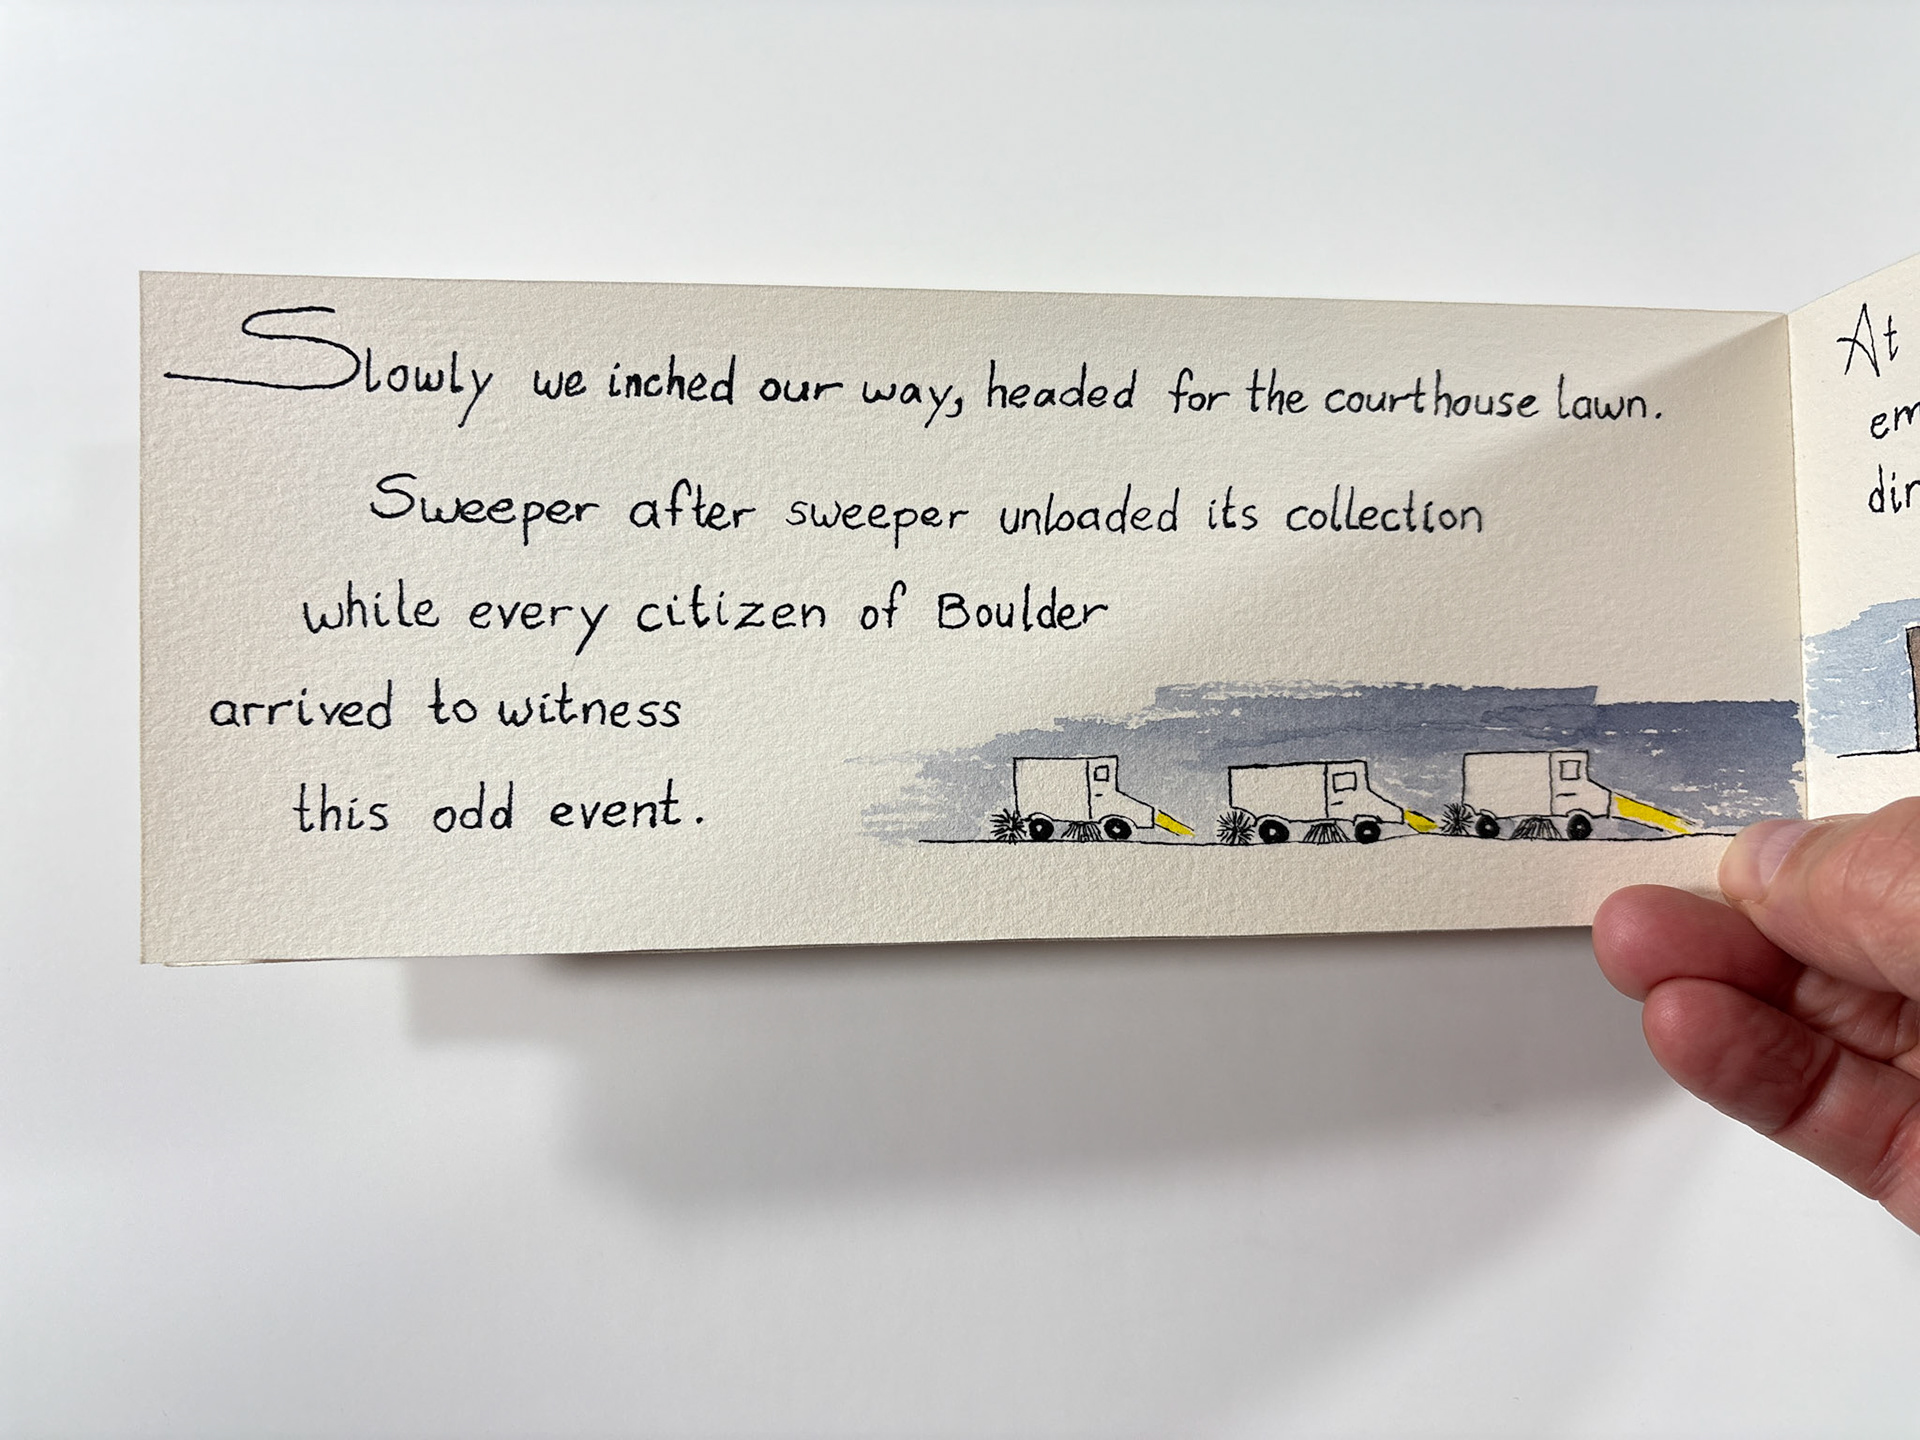 Slowly we inched our way, headed for the courthouse lawn.
Sweeper after sweeper unloaded its collection
while every citizen of Boulder
arrived to witness
this odd event.
At